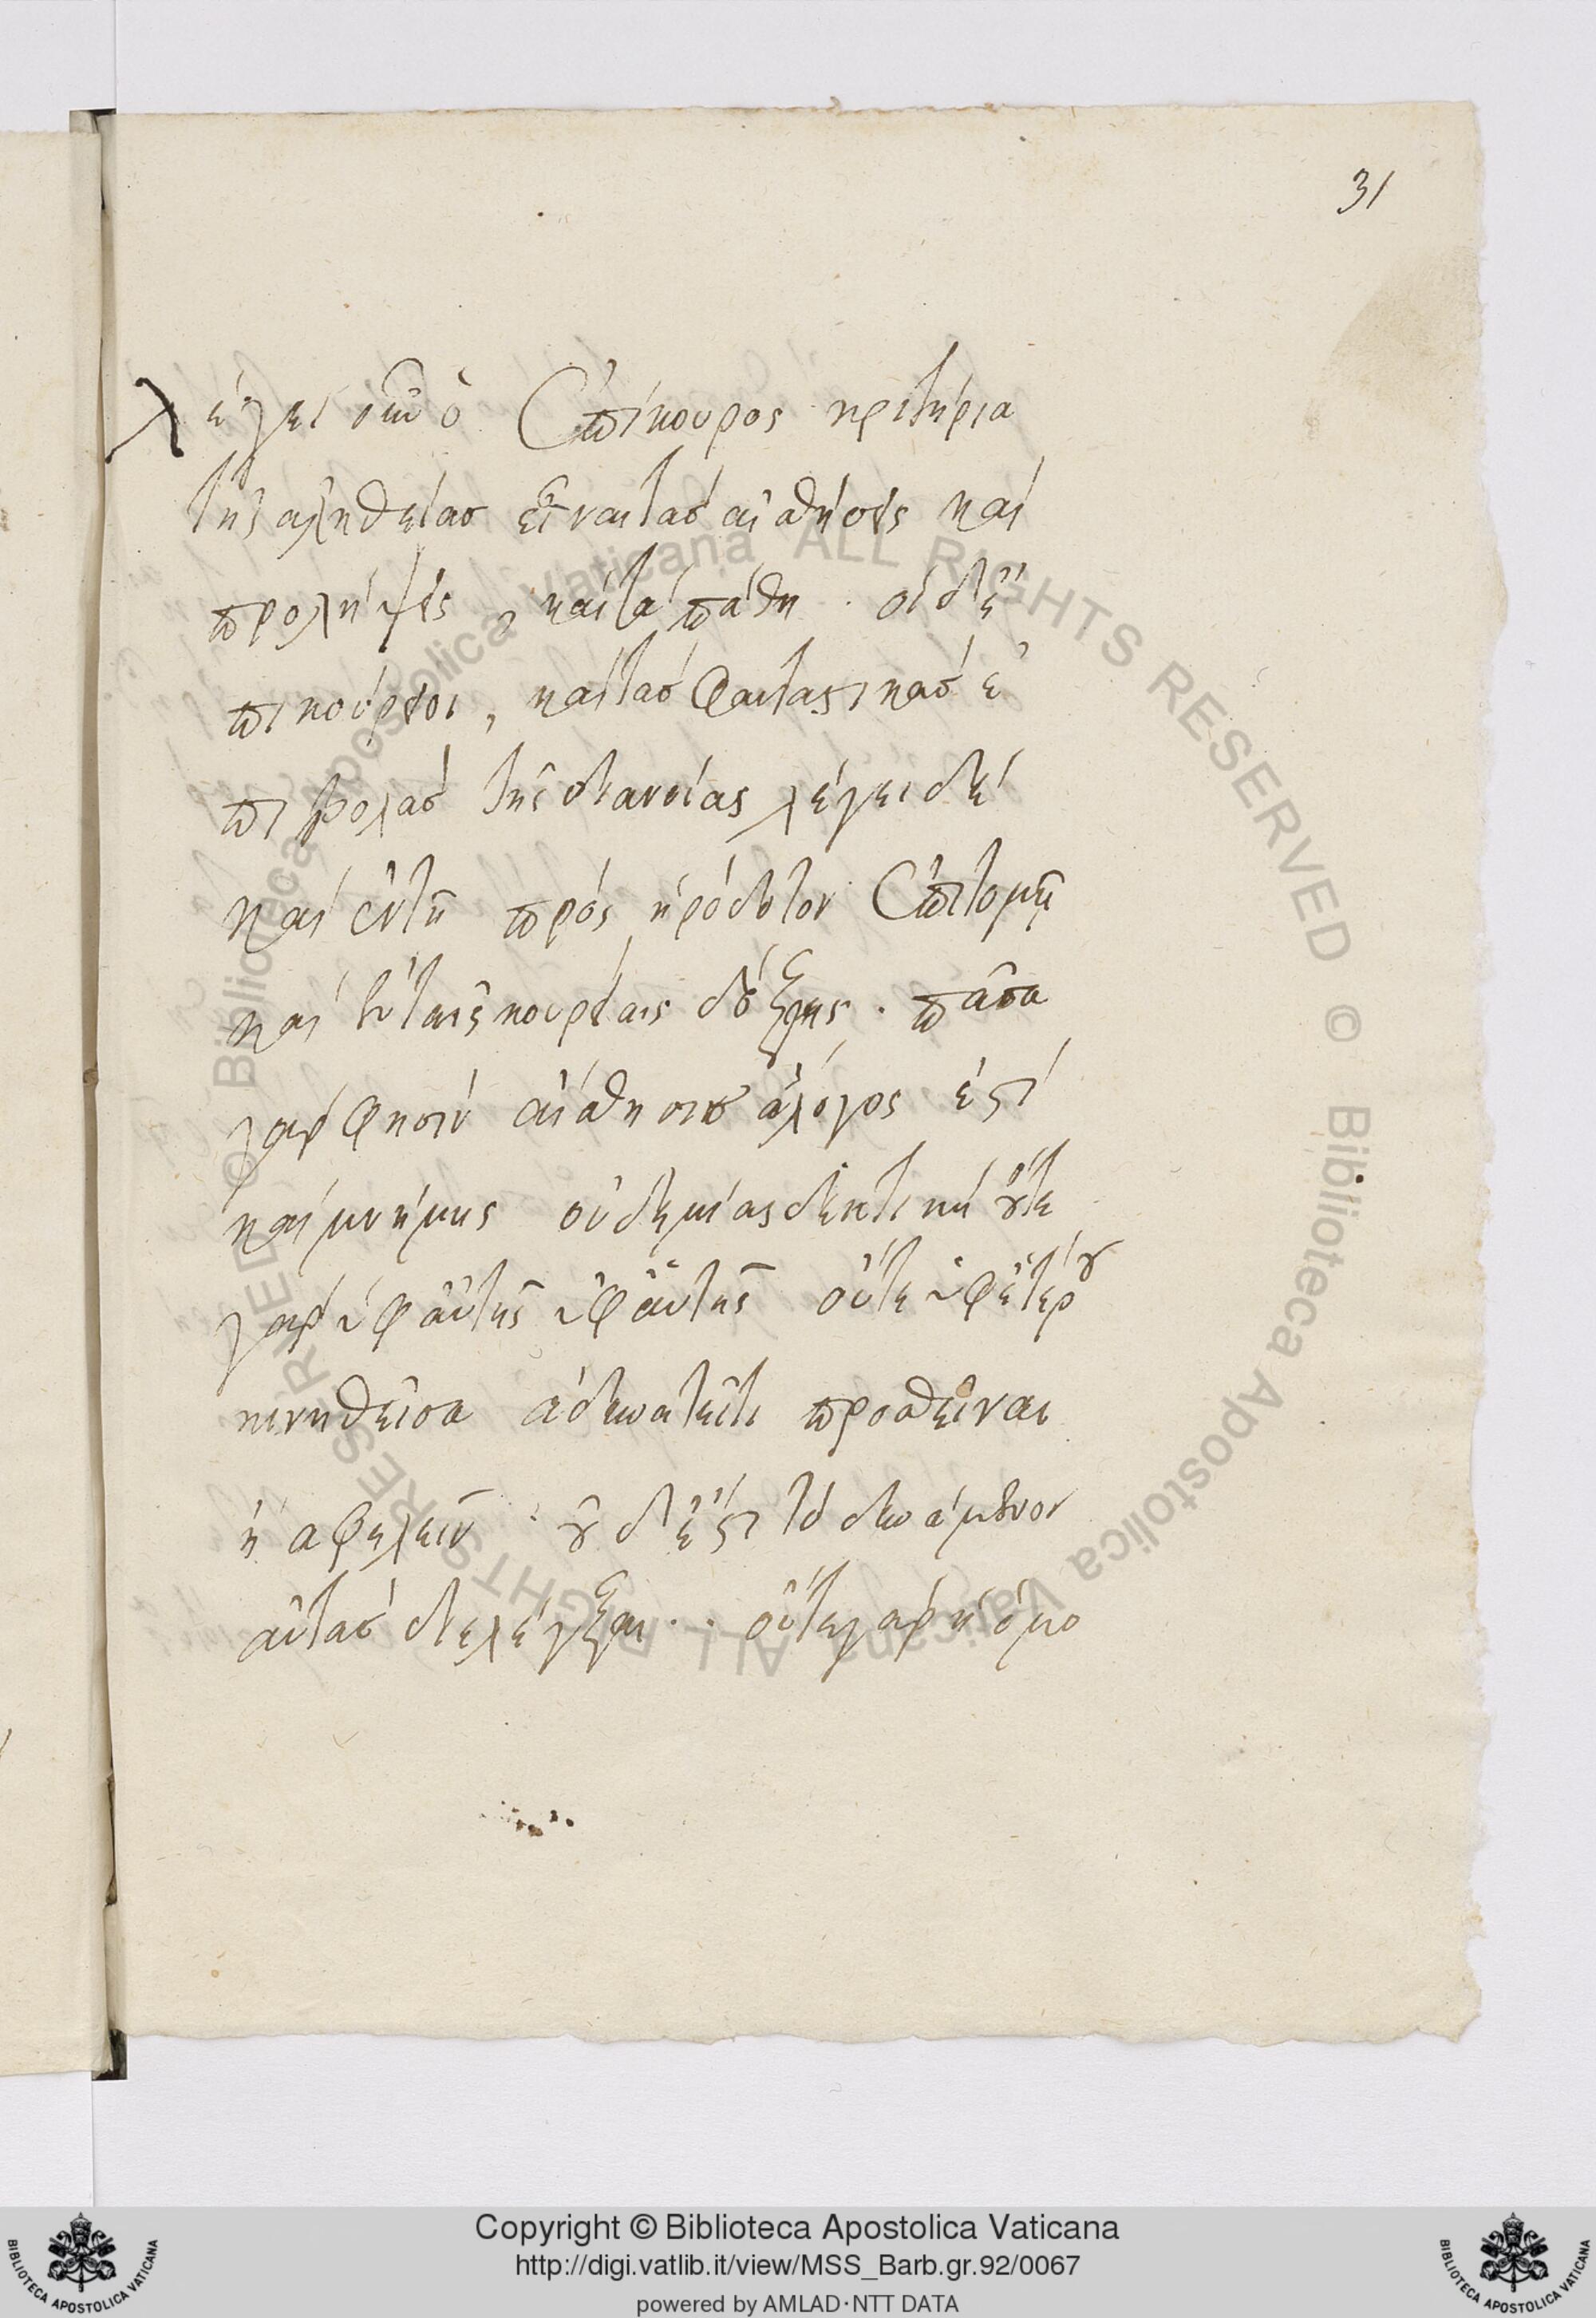 31
λέγει οὖν ὁ Ἐπίκουρος κριτήρια
τῆς αληθείας εἶναι τὰσ αἰσθήσεις καὶ
προλήψεις, καὶ τὰ πάθη. οἱ δ' ἐ
πικούρειοι, καὶ τὰσ φανταστικὰσ ἐ
πιβολὰσ τῆς διανοίας λέγει δὲ
καὶ ἐν τῆ πρὸς ἡρόδοτον Ἐπιτομῆ
καὶ ἐν ταῖς κουρίαις δόξαις. πᾶσα
γὰρ φησὶν αἴσθησισ ἄλογος ἐστὶ
καὶ μνήμης οὐδεμίας δεκτικὴ οὔτε
γὰρ ὑφ αὑτῆς ὑφ αὑτῆς οὔτε ὑφ ἑτέρου
κινηθεῖσα ἀδυνατεῖ τι προσθεῖναι
ἢ αφελεῖν. οὐδ' ἔστι τὸ δυνάμενον
αὐτὰσ διελέγξαι.. οὔτε γὰρ ἡ ὁμο
Copyright © Biblioteca Apostolica Vaticana
http://digi.vatlib.it/view/MSS_Barb.gr.92/0067
powered by AMLAD·NTT DATA
© Biblioteca Apostolica Vaticana ALL RIGHTS RESERVED
© Biblioteca Apostolica Vaticana ALL RIGHTS RESERVED
BIBLIOTECA APOSTOLICA VATICANA
BIBLIOTECA APOSTOLICA VATICANA